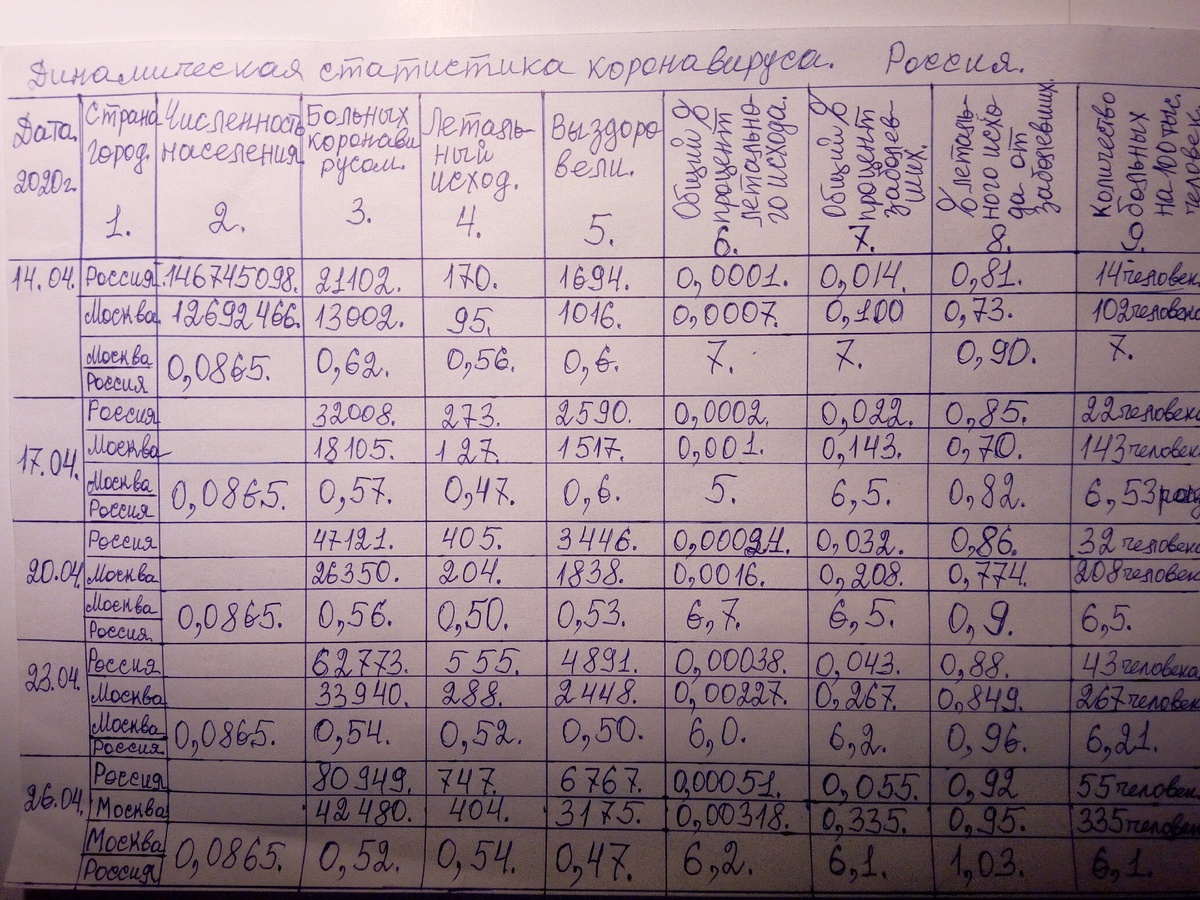 Динамическая статистика коронавируса. Россия.
Дата. 2020г.
Страна город. 1.
Численность населения 2.
Больных коронавирусом. 3.
Летальный исход. 4.
Выздоровели. 5.
Общий % процент летального исхода. 6.
Общий % процент заболевших. 7.
% летального исхода от заболевших. 8.
Количество больных на 100 тыс. человек.
14.04. Россия. 146745098. 21102. 170. 1694. 0,0001. 0,014. 0,81. 14 человек
Москва. 12692466. 13002. 95. 1016. 0,0007. 0,100 0,73. 102 человека
Москва Россия 0,0865. 0,62. 0,56. 0,6. 7. 7. 0,90. 7.
17.04. Россия 32008. 273. 2590. 0,0002. 0,022. 0,85. 22 человека
Москва 18105. 127. 1517. 0,001. 0,143. 0,70. 143 человек
Москва Россия 0,0865. 0,57. 0,47. 0,6. 5. 6,5. 0,82. 6,5
20.04. Россия 47121. 405. 3446. 0,032. 0,86. 32 человек
Москва 26350. 204. 1838. 0,0016. 0,208. 0,774. 208 человек
Москва Россия. 0,0865. 0,56. 0,50. 0,53. 6,7. 6,5. 0,9. 6,5.
23.04. Россия 62773. 555. 4891. 0,00038. 0,043. 0,88. 43 человека
Москва 33940. 288. 2448. 0,00227. 0,267. 0,849. 267 человек
Москва Россия 0,0865. 0,54. 0,52. 0,50. 6,0. 6,2. 0,96. 6,21.
26.04. Россия 80949. 747. 6767. 0,00051. 0,055. 0,92 55 человек
Москва 42480. 404. 3175. 0,00318. 0,335. 0,95. 335 человек
Москва Россия 0,0865. 0,52. 0,54. 0,47. 6,2. 6,1. 1,03. 6,1.